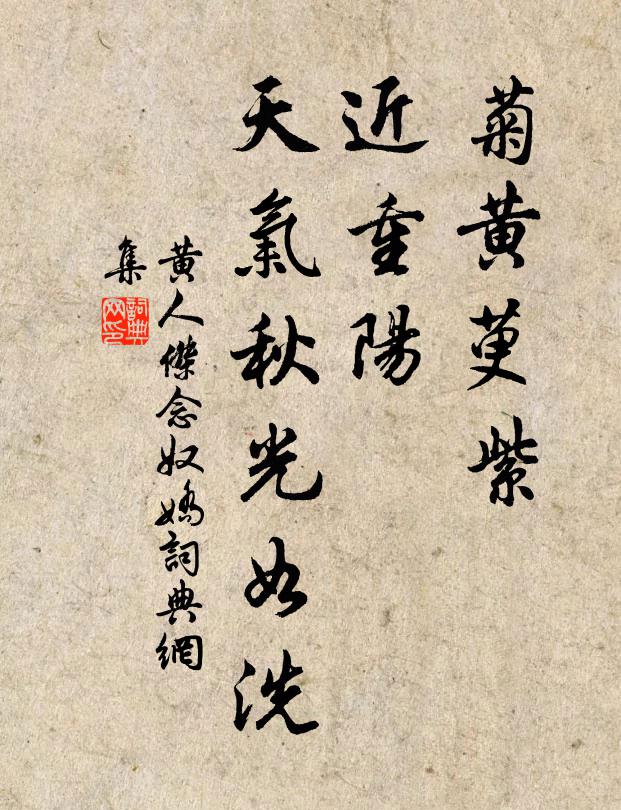 菊黄萸紫
近重陽
天氣秋光如洗
黄人傑念奴嬌詞典網
集
詞典网印